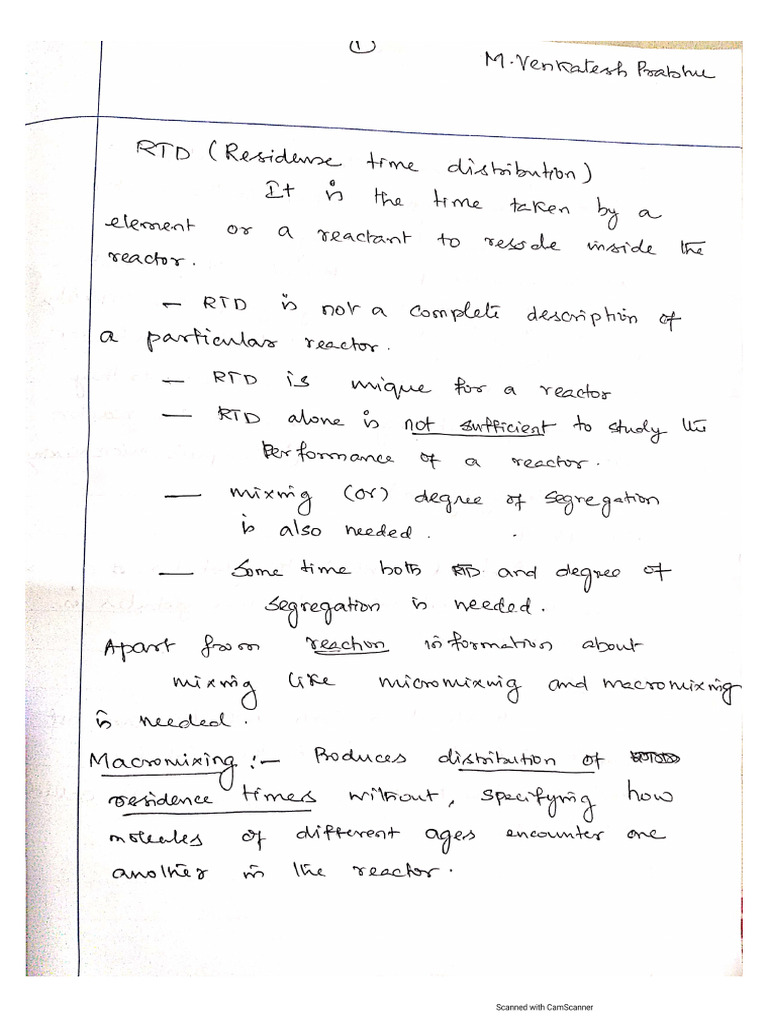 1
M. Venkatesh Prabhu
RTD (Residense time distribution)
It is the time taken by a
element or a reactant to reside inside the
reactor.
- RTD is not a complete description of
a particular reactor.
- RTD is unique for a reactor
- RTD alone is not sufficient to study the
Performance of a reactor.
- mixing (or) degree of segregation
is also needed.
- Some time both RTD and degree of
segregation is needed.
Apart from reaction information about
mixing like micromixing and macromixing
is needed.
Macromixing :- Produces distribution of
residence times without, specifying how
molecules of different ages encounter one
another in the reactor.
Scanned with CamScanner